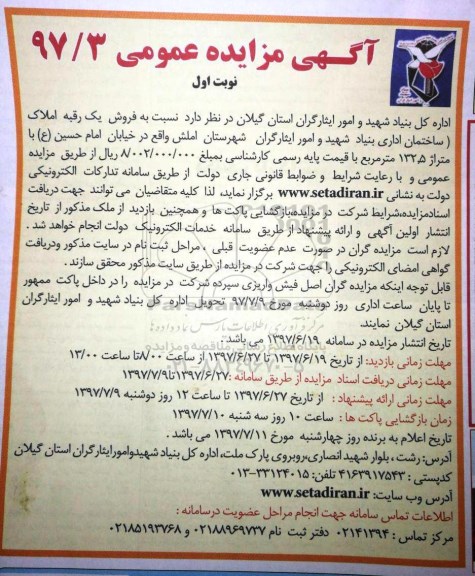 آگهی مزایده عمومی ۹۷/۳
نوبت اول
اداره کل بنیاد شهید و امور ایثارگران استان گیلان در نظر دارد نسبت به فروش یک رقبه املاک
( ساختمان اداری بنیاد شهید و امور ایثارگران شهرستان املش واقع در خیابان امام حسین (ع) با
متراژ ۱۳۲.۵ مترمربع با قیمت پایه رسمی کارشناسی بمبلغ ۸/۰۰۲/۰۰۰/۰۰۰ ریال از طریق مزایده
عمومی و با رعایت شرایط و ضوابط قانونی جاری دولت از طریق سامانه تدارکات الکترونیکی
دولت به نشانی www.setadiran.ir برگزار نماید، لذا کلیه متقاضیان می توانند جهت دریافت
اسنادمزایده،شرایط شرکت در مزایده،بازگشایی پاکت ها و همچنین بازدید از ملک مذکور از تاریخ
انتشار اولین آگهی و ارائه پیشنهاد از طریق سامانه خدمات الکترونیک دولت انجام خواهد شد .
لازم است مزایده گران در صورت عدم عضویت قبلی ، مراحل ثبت نام در سایت مذکور ودریافت
گواهی امضای الکترونیکی را جهت شرکت در مزایده از طریق سایت مذکور محقق سازند .
قابل توجه اینکه مزایده گران اصل فیش واریزی سپرده شرکت در مزایده را در داخل پاکت ممهور
تا پایان ساعت اداری روز دوشنبه مورخ ۹۷/۷/۹ تحویل اداره کل بنیاد شهید و امور ایثارگران
استان گیلان نمایند.
تاریخ انتشار مزایده در سامانه ۱۳۹۷/۶/۱۹ می باشد.
مهلت زمانی بازدید: از تاریخ ۱۳۹۷/۶/۱۹ تا ۱۳۹۷/۶/۲۷ از ساعت ۸/۰۰ تا ساعت ۱۳/۰۰
مهلت زمانی دریافت اسناد مزایده از طریق سامانه :۱۳۹۷/۶/۲۷ تا۱۳۹۷/۷/۹
مهلت زمانی ارائه پیشنهاد : از تاریخ ۱۳۹۷/۶/۲۷ تا ساعت ۱۲ روز دوشنبه ۱۳۹۷/۷/۹
زمان بازگشایی پاکت ها : ساعت ۱۰ روز سه شنبه ۱۳۹۷/۷/۱۰
تاریخ اعلام به برنده روز چهارشنبه مورخ ۱۳۹۷/۷/۱۱ می باشد .
آدرس: رشت ، بلوار شهید انصاری،روبروی پارک ملت، اداره کل بنیاد شهیدوامورایثارگران استان گیلان
کدپستی : ۴۱۶۳۹۱۷۵۴۳ تلفن: ۳۳۱۲۴۰۱۵-۰۱۳
آدرس وب سایت: www.setadiran.ir
اطلاعات تماس سامانه جهت انجام مراحل عضویت درسامانه :
مرکز تماس : ۰۲۱۴۱۳۹۴ دفتر ثبت نام ۰۲۱۸۸۹۶۹۷۳۷ و ۰۲۱۸۵۱۹۳۷۶۸